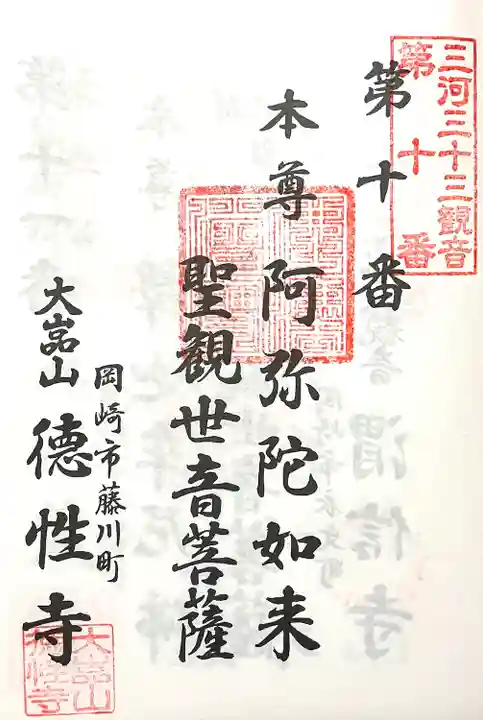 三河三十三観音
第十番
第十番
本尊 阿弥陀如来
聖観世音菩薩
岡崎市藤川町
大嵓山 徳性寺
大嵓山
徳性寺